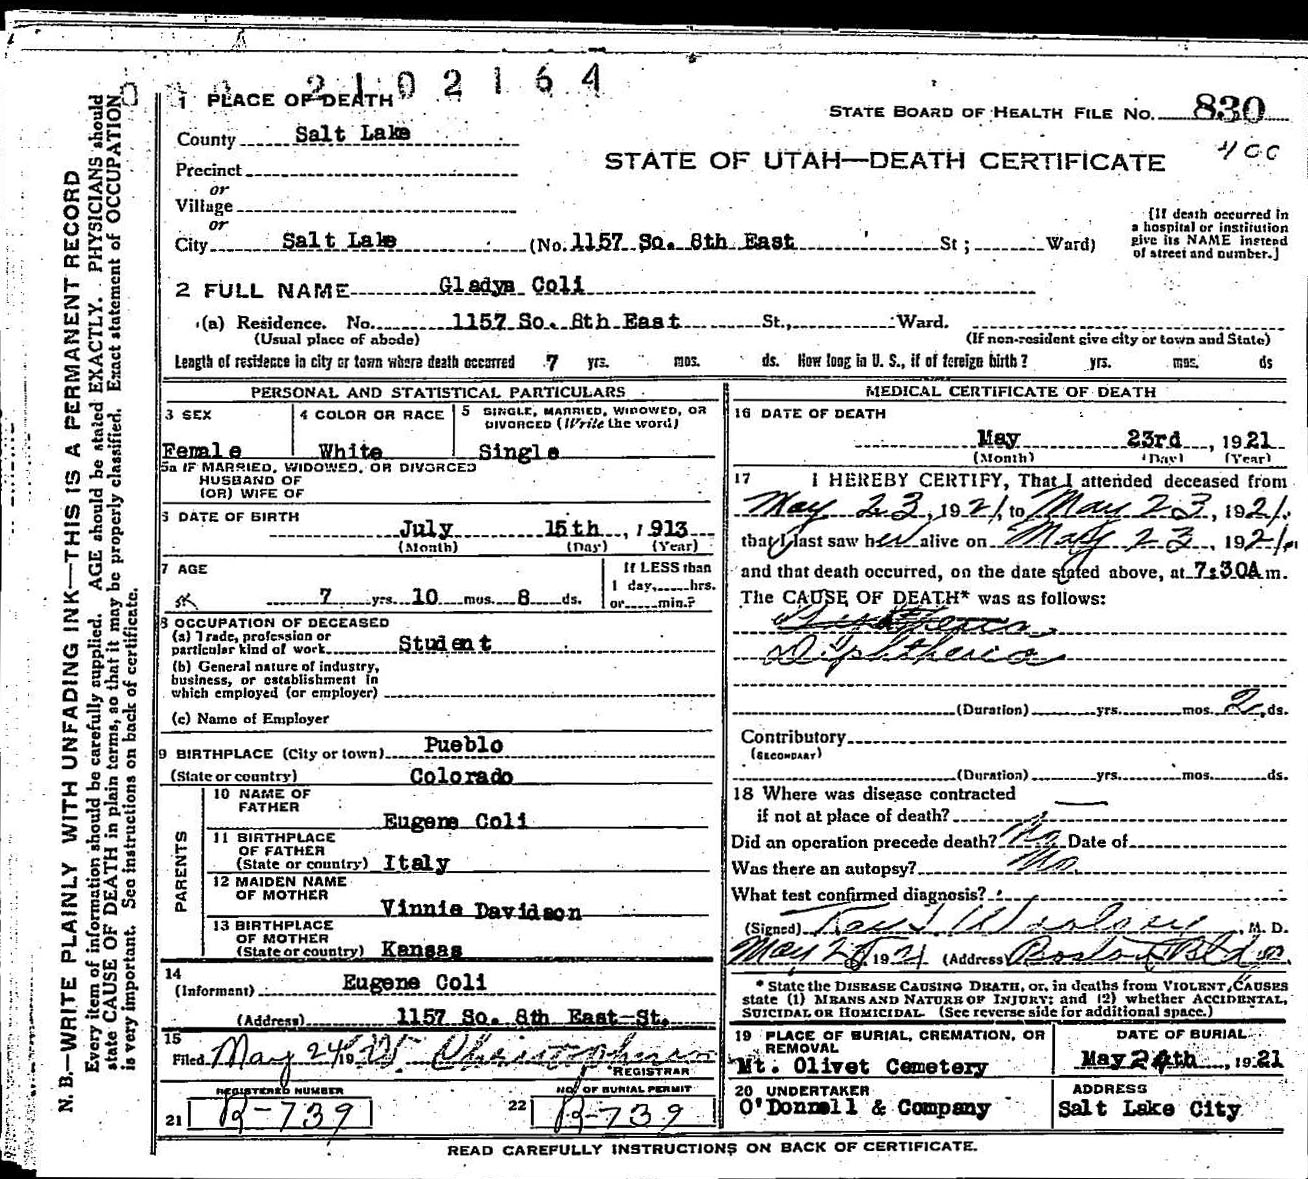 2102164
1 PLACE OF DEATH
STATE BOARD OF HEALTH FILE NO. 830
400
County Salt Lake
STATE OF UTAH—DEATH CERTIFICATE
Precinct
or
Village
or
City Salt Lake (No. 1157 So. 8th East St; Ward)
[If death occurred in
a hospital or institution
give its NAME instead
of street and number.]
2 FULL NAME Gladys Coli
(a) Residence. No. 1157 So. 8th East St., Ward.
(Usual place of abode) (If non-resident give city or town and State)
Length of residence in city or town where death occurred 7 yrs. mos. ds. How long in U. S., if of foreign birth? yrs. mos. ds
PERSONAL AND STATISTICAL PARTICULARS
3 SEX
Female
4 COLOR OR RACE
White
5 SINGLE, MARRIED, WIDOWED, OR
DIVORCED (Write the word)
Single
5a IF MARRIED, WIDOWED, OR DIVORCED
HUSBAND OF
(OR) WIFE OF
6 DATE OF BIRTH
July 15th, 1913
(Month) (Day) (Year)
7 AGE
7 yrs. 10 mos. 8 ds.
If LESS than
1 day, hrs.
or min.?
8 OCCUPATION OF DECEASED
(a) Trade, profession or
particular kind of work Student
(b) General nature of industry,
business, or establishment in
which employed (or employer)
(c) Name of Employer
9 BIRTHPLACE (City or town) Pueblo
(State or country) Colorado
PARENTS
10 NAME OF
FATHER
Eugene Coli
11 BIRTHPLACE
OF FATHER
(State or country) Italy
12 MAIDEN NAME
OF MOTHER
Vinnie Davidson
13 BIRTHPLACE
OF MOTHER
(State or country) Kansas
14
(Informant) Eugene Coli
(Address) 1157 So. 8th East St.
15
Filed May 24 19 W. Christopherson
REGISTRAR
REGISTERED NUMBER
21 R-739
NO. OF BURIAL PERMIT
22 R-739
MEDICAL CERTIFICATE OF DEATH
16 DATE OF DEATH
May 23rd, 1921
(Month) (Day) (Year)
17 I HEREBY CERTIFY, That I attended deceased from
May 23, 1921, to May 23, 1921.
that I last saw her alive on May 23, 1921.
and that death occurred, on the date stated above, at 7:30A m.
The CAUSE OF DEATH* was as follows:
Diphtheria
(Duration) yrs. mos. 2 ds.
Contributory
(SECONDARY)
(Duration) yrs. mos. ds.
18 Where was disease contracted
if not at place of death?
Did an operation precede death? No Date of
Was there an autopsy? No.
What test confirmed diagnosis?
(Signed) , M. D.
May 1921 (Address) Boston Bldg.
* State the DISEASE CAUSING DEATH, or, in deaths from VIOLENT CAUSES
state (1) MEANS AND NATURE OF INJURY; and (2) whether ACCIDENTAL,
SUICIDAL OR HOMICIDAL. (See reverse side for additional space.)
19 PLACE OF BURIAL, CREMATION, OR
REMOVAL
Mt. Olivet Cemetery
DATE OF BURIAL
May 24th, 1921
20 UNDERTAKER
O'Donnell & Company
ADDRESS
Salt Lake City
READ CAREFULLY INSTRUCTIONS ON BACK OF CERTIFICATE.
N. B.—WRITE PLAINLY WITH UNFADING INK—THIS IS A PERMANENT RECORD
Every item of information should be carefully supplied. AGE should be stated EXACTLY. PHYSICIANS should
state CAUSE OF DEATH in plain terms, so that it may be properly classified. Exact statement of OCCUPATION
is very important. See instructions on back of certificate.